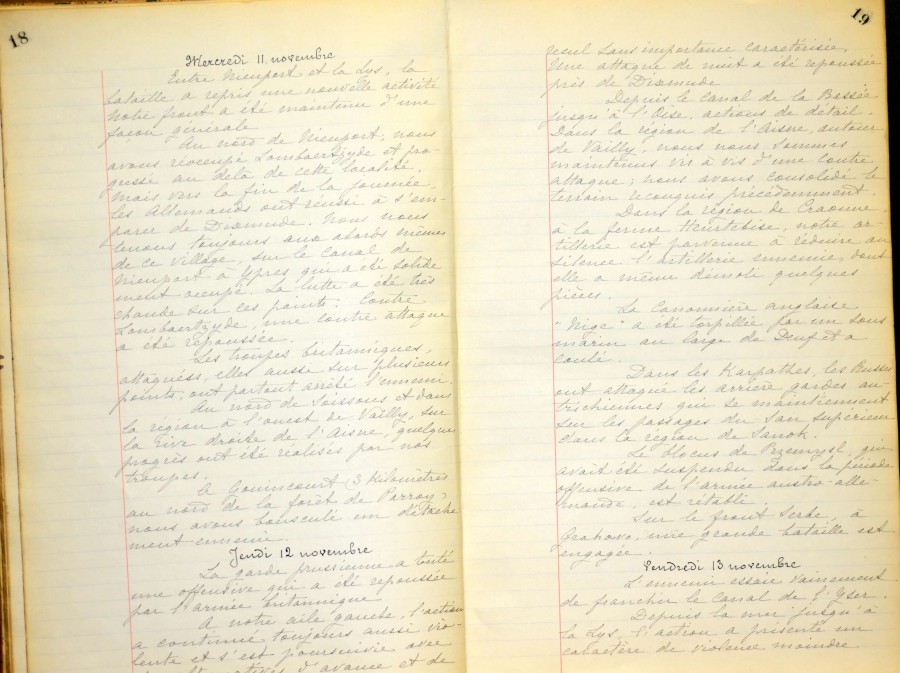 18
Mercredi 11 novembre
Entre Nieuport et la Lys, la
bataille a repris une nouvelle activité
Notre front a été maintenu d'une
façon générale
Au nord de Nieuport, nous
avons réoccupé Lombaertzyde et pro-
gressé au delà de cette localité.
Mais vers la fin de la journée,
les Allemands ont réussi à s'em-
parer de Dixmude. Nous nous
tenons toujours aux abords mêmes
de ce village, sur le canal de
Nieuport à Ypres qui a été solide
ment occupé. La lutte a été très
chaude sur ces points. Contre
Lombaertzyde, une contre attaque
a été repoussée.
Les troupes britanniques,
attaqués, elles aussi sur plusieurs
points, ont partout arrêté l'ennemi.
Au nord de Soissons et dans
la région à l'ouest de Vailly, sur
la rive droite de l'Aisne, quelques
progrès ont été réalisés par nos
troupes.
A Gouincourt (3 kilomètres
au nord de la forêt de Parroy)
nous avons bousculé un détache
ment ennemi.
Jeudi 12 novembre
La garde prussienne a tenté
une offensive qui a été repoussée
par l'armée britannique
A notre aile gauche, l'action
a continué toujours aussi vio-
lente et s'est poursuivie avec
d'avance et de
19
recul sans importance caractérisée.
Une attaque de nuit a été repoussée
près de Dixmude
Depuis le canal de la Bassée
jusqu'à l'Oise, actions de détail.
Dans la région de l'Aisne, autour
de Vailly, nous nous sommes
maintenus vis à vis d'une contre
attaque; nous avons consolidé le
terrain reconquis précédemment.
Dans la région de Craonne,
à la ferme Heurtebise, notre ar-
tillerie est parvenue à réduire au
silence l'artillerie ennemie, dont
elle a même démoli quelques
pièces.
La canonnière anglaise
"Niger" a été torpillée par un sous
marin au large de Deuf et a
coulé.
Dans les Karpathes, les Russes
ont attaqué les arrière gardes au-
trichiennes qui se maintiennent
sur les passages du San supérieur
dans la région de Sanok.
Le blocus de Przemysl, qui
avait été suspendu dans la période
offensive de l'armée austro-alle-
mande, est rétabli.
Sur le front Serbe, à
Grahovo, une grande bataille est
engagée.
Vendredi 13 novembre
L'ennemi essaie vainement
de franchir le canal de l'Yser.
Depuis la mer jusqu'à
la Lys, l'action a présenté un
caractère de violence moindre.